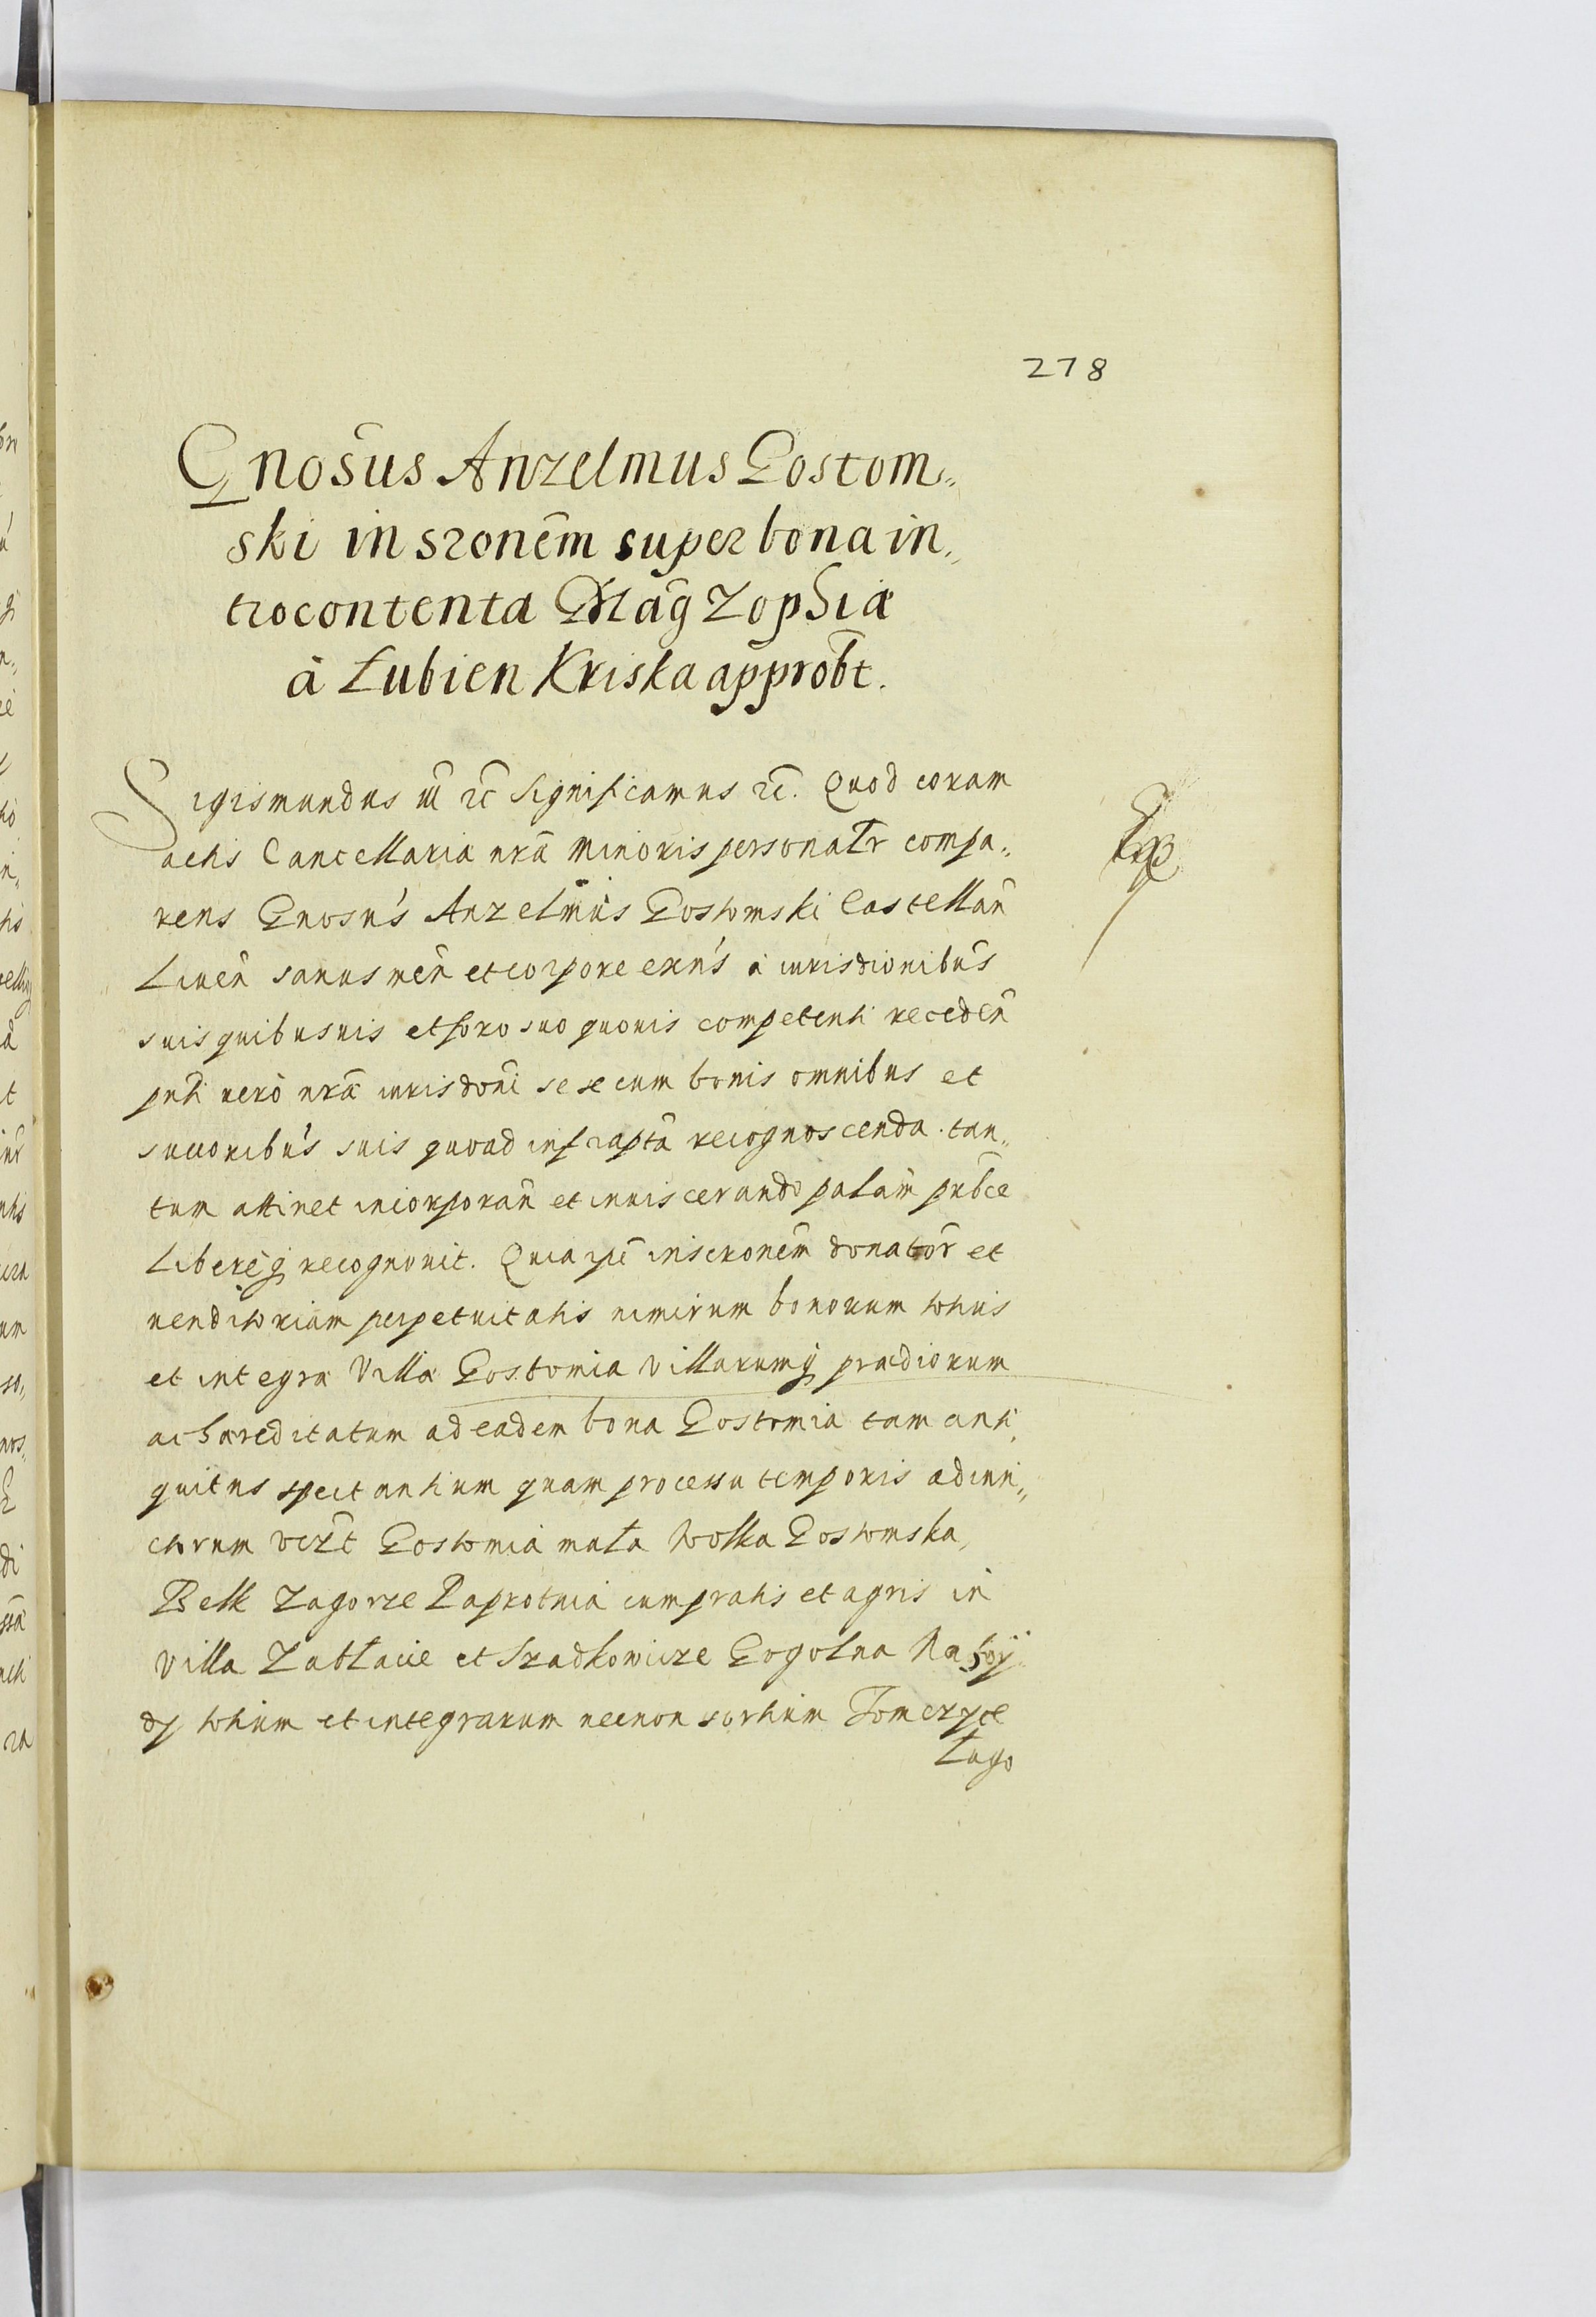 278
Gnosus Anzelmus Gostom„
ski inscronem super bona in„
trocontenta Mag Zophiæ
à Łubien Kriska approbt.
Sigismundus III etc Significamus etc. Quod coram
actis Cancellariæ nræ Minoris personalr compa„
rens Gnosus Anzelmus Gostomski Castellan
Liuen sanus men et corpore exns à iurisdionibus
suis quibusuis et foro suo quouis competenti receden
pnti uerò nræ iurisdoni se se cum bonis omnibus et
succoribus suis quoad infrapta recognoscenda tan„
tum attinet incorporan et inuiscerando palam pubce
libereq recognouit. Quia ipe inscronem donator et
uenditoriam perpetuitatis nimirum bonorum totius
et integræ Villæ Gostomia villarumq prædiorum
ac hæreditatum ad eadem bona Gostomia tam anti„
quitus spectantium quam processu temporis adiun„
ctorum vizt Gostomia mała Wolka Gostomska,
Belk Zagorze Paprotnia cum pratis et agris in
villa Zabłacie et Szadkowicze Gogolna
dy totium et integrarum necnon sortium Tomczyce
Łago